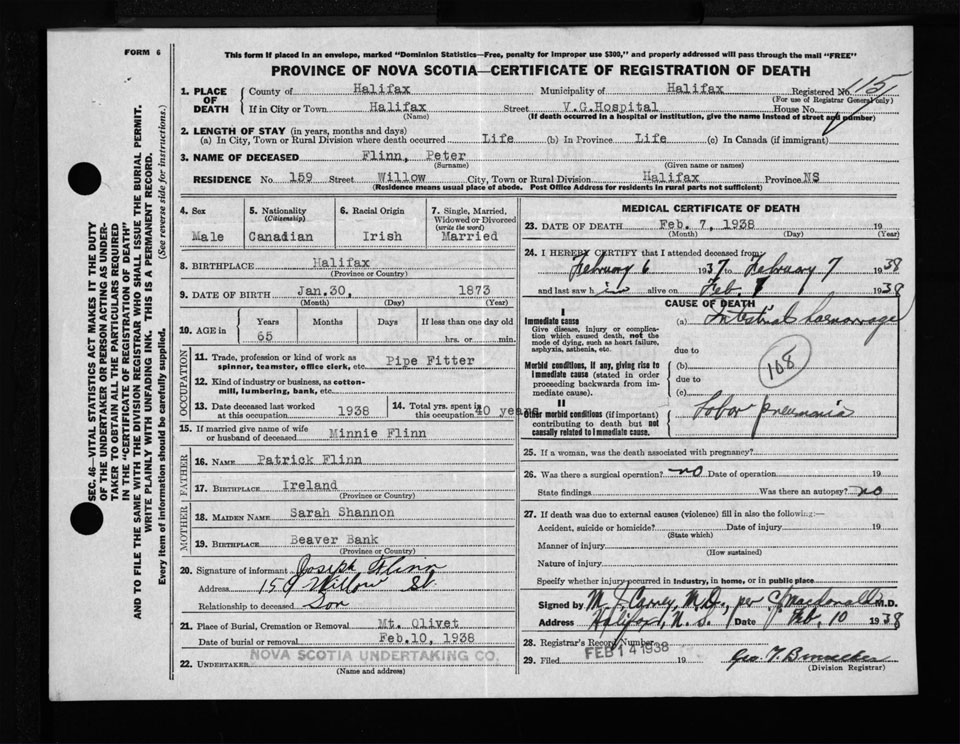 FORM 6
This form if placed in an envelope, marked "Dominion Statistics—Free, penalty for improper use $300," and properly addressed will pass through the mail "FREE"
PROVINCE OF NOVA SCOTIA—CERTIFICATE OF REGISTRATION OF DEATH
SEC. 46—VITAL STATISTICS ACT MAKES IT THE DUTY
OF THE UNDERTAKER OR PERSON ACTING AS UNDER-
TAKER TO OBTAIN ALL THE PARTICULARS REQUIRED
IN THE "CERTIFICATE OF REGISTRATION OF DEATH"
AND TO FILE THE SAME WITH THE DIVISION REGISTRAR WHO SHALL ISSUE THE BURIAL PERMIT.
WRITE PLAINLY WITH UNFADING INK. THIS IS A PERMANENT RECORD.
Every item of information should be carefully supplied. (See reverse side for instructions.)
1. PLACE OF DEATH
County of Halifax Municipality of Halifax Registered No. 115
(For use of Registrar General only)
If in City or Town Halifax Street V.G.Hospital House No.
(Name) (If death occurred in a hospital or institution, give the name instead of street and number)
2. LENGTH OF STAY (in years, months and days)
(a) In City, Town or Rural Division where death occurred Life (b) In Province Life (c) In Canada (if immigrant)
3. NAME OF DECEASED Flinn, Peter
(Surname) (Given name or names)
RESIDENCE No 159 Street Willow City, Town or Rural Division Halifax Province NS
(Residence means usual place of abode. Post Office Address for residents in rural parts not sufficient)
4. Sex
Male
5. Nationality
(Citizenship)
Canadian
6. Racial Origin
Irish
7. Single, Married,
Widowed or Divorced
(write the word)
Married
8. BIRTHPLACE Halifax
(Province or Country)
9. DATE OF BIRTH Jan.30, 1873
(Month) (Day) (Year)
10. AGE in
Years Months Days If less than one day old
65 hrs. or min.
OCCUPATION
11. Trade, profession or kind of work as
spinner, teamster, office clerk, etc. Pipe Fitter
12. Kind of industry or business, as cotton-
mill, lumbering, bank, etc.
13. Date deceased last worked
at this occupation 1938
14. Total yrs. spent in
this occupation 40 years
15. If married give name of wife
or husband of deceased Minnie Flinn
FATHER
16. NAME Patrick Flinn
17. BIRTHPLACE Ireland
(Province or Country)
MOTHER
18. MAIDEN NAME Sarah Shannon
19. BIRTHPLACE Beaver Bank
(Province or Country)
20. Signature of informant Joseph Flinn
Address 159 Willow St.
Relationship to deceased Son
21. Place of Burial, Cremation or Removal Mt. Olivet
Date of burial or removal Feb.10, 1938
22. UNDERTAKER NOVA SCOTIA UNDERTAKING CO.
(Name and address)
MEDICAL CERTIFICATE OF DEATH
23. DATE OF DEATH Feb. 7, 1938 19
(Month) (Day) (Year)
24. I HEREBY CERTIFY that I attended deceased from
February 6 1937 to February 7 1938
and last saw him alive on Feb 7 1938
CAUSE OF DEATH
I
Immediate cause
Give disease, injury or complica-
tion which caused death, not the
mode of dying, such as heart failure,
asphyxia, asthenia, etc.
(a) Intestinal haemorrage
due to
Morbid conditions, if any, giving rise to
immediate cause (stated in order
proceeding backwards from im-
mediate cause).
(b)
due to
(c)
108
II
Other morbid conditions (if important)
contributing to death but not
causally related to immediate cause.
Lobar pneumonia
25. If a woman, was the death associated with pregnancy?
26. Was there a surgical operation? no Date of operation 19
State findings Was there an autopsy? no
27. If death was due to external causes (violence) fill in also the following:—
Accident, suicide or homicide? Date of injury 19
(State which)
Manner of injury
(How sustained)
Nature of injury
Specify whether injury occurred in industry, in home, or in public place
Signed by M. J. Carney, M.D., per C. J. Macdonald M.D.
Address Halifax, N.S. Date Feb, 10 1938
28. Registrar's Record Number
29. Filed FEB 14 1938 19 Geo. T.
(Division Registrar)